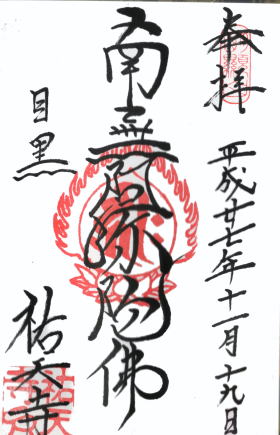 奉拝
平成廿七年十一月十九日
南無阿弥陀佛
目黒
祐天寺